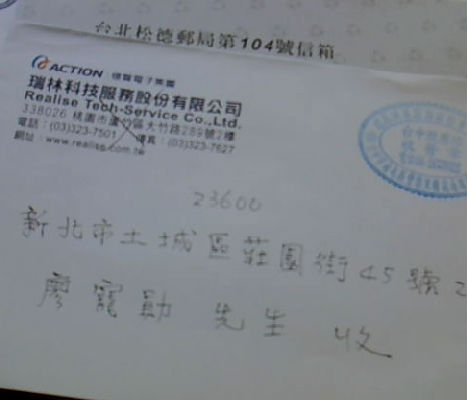 台北松德郵局第104號信箱
ACTION 捷聲電子集團
瑞林科技服務股份有限公司
Realise Tech-Service Co.,Ltd.
338026 桃園市蘆竹區大竹路289號2樓
電話:(03)323-7501 傳真:(03)323-7627
網址:www.realise.com.tw
23600
新北市土城區莊園街45號2
廖寵勛 先生 收